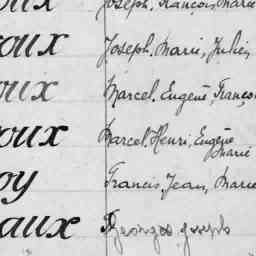 Joseph, François, Marie
oux Joseph. Marie, Julien,
oux Marcel. Eugène, Franço
oux Marcel. Henri, Eugène
Marie
oy Francis, Jean, Marie
aux Georges, Joseph